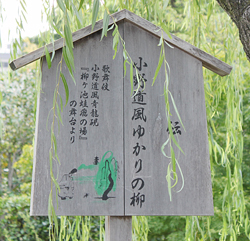 小野道風ゆかりの柳
伝
歌舞伎
小野道風青龍硯
『柳ヶ池蛙飛の場』
の舞台より